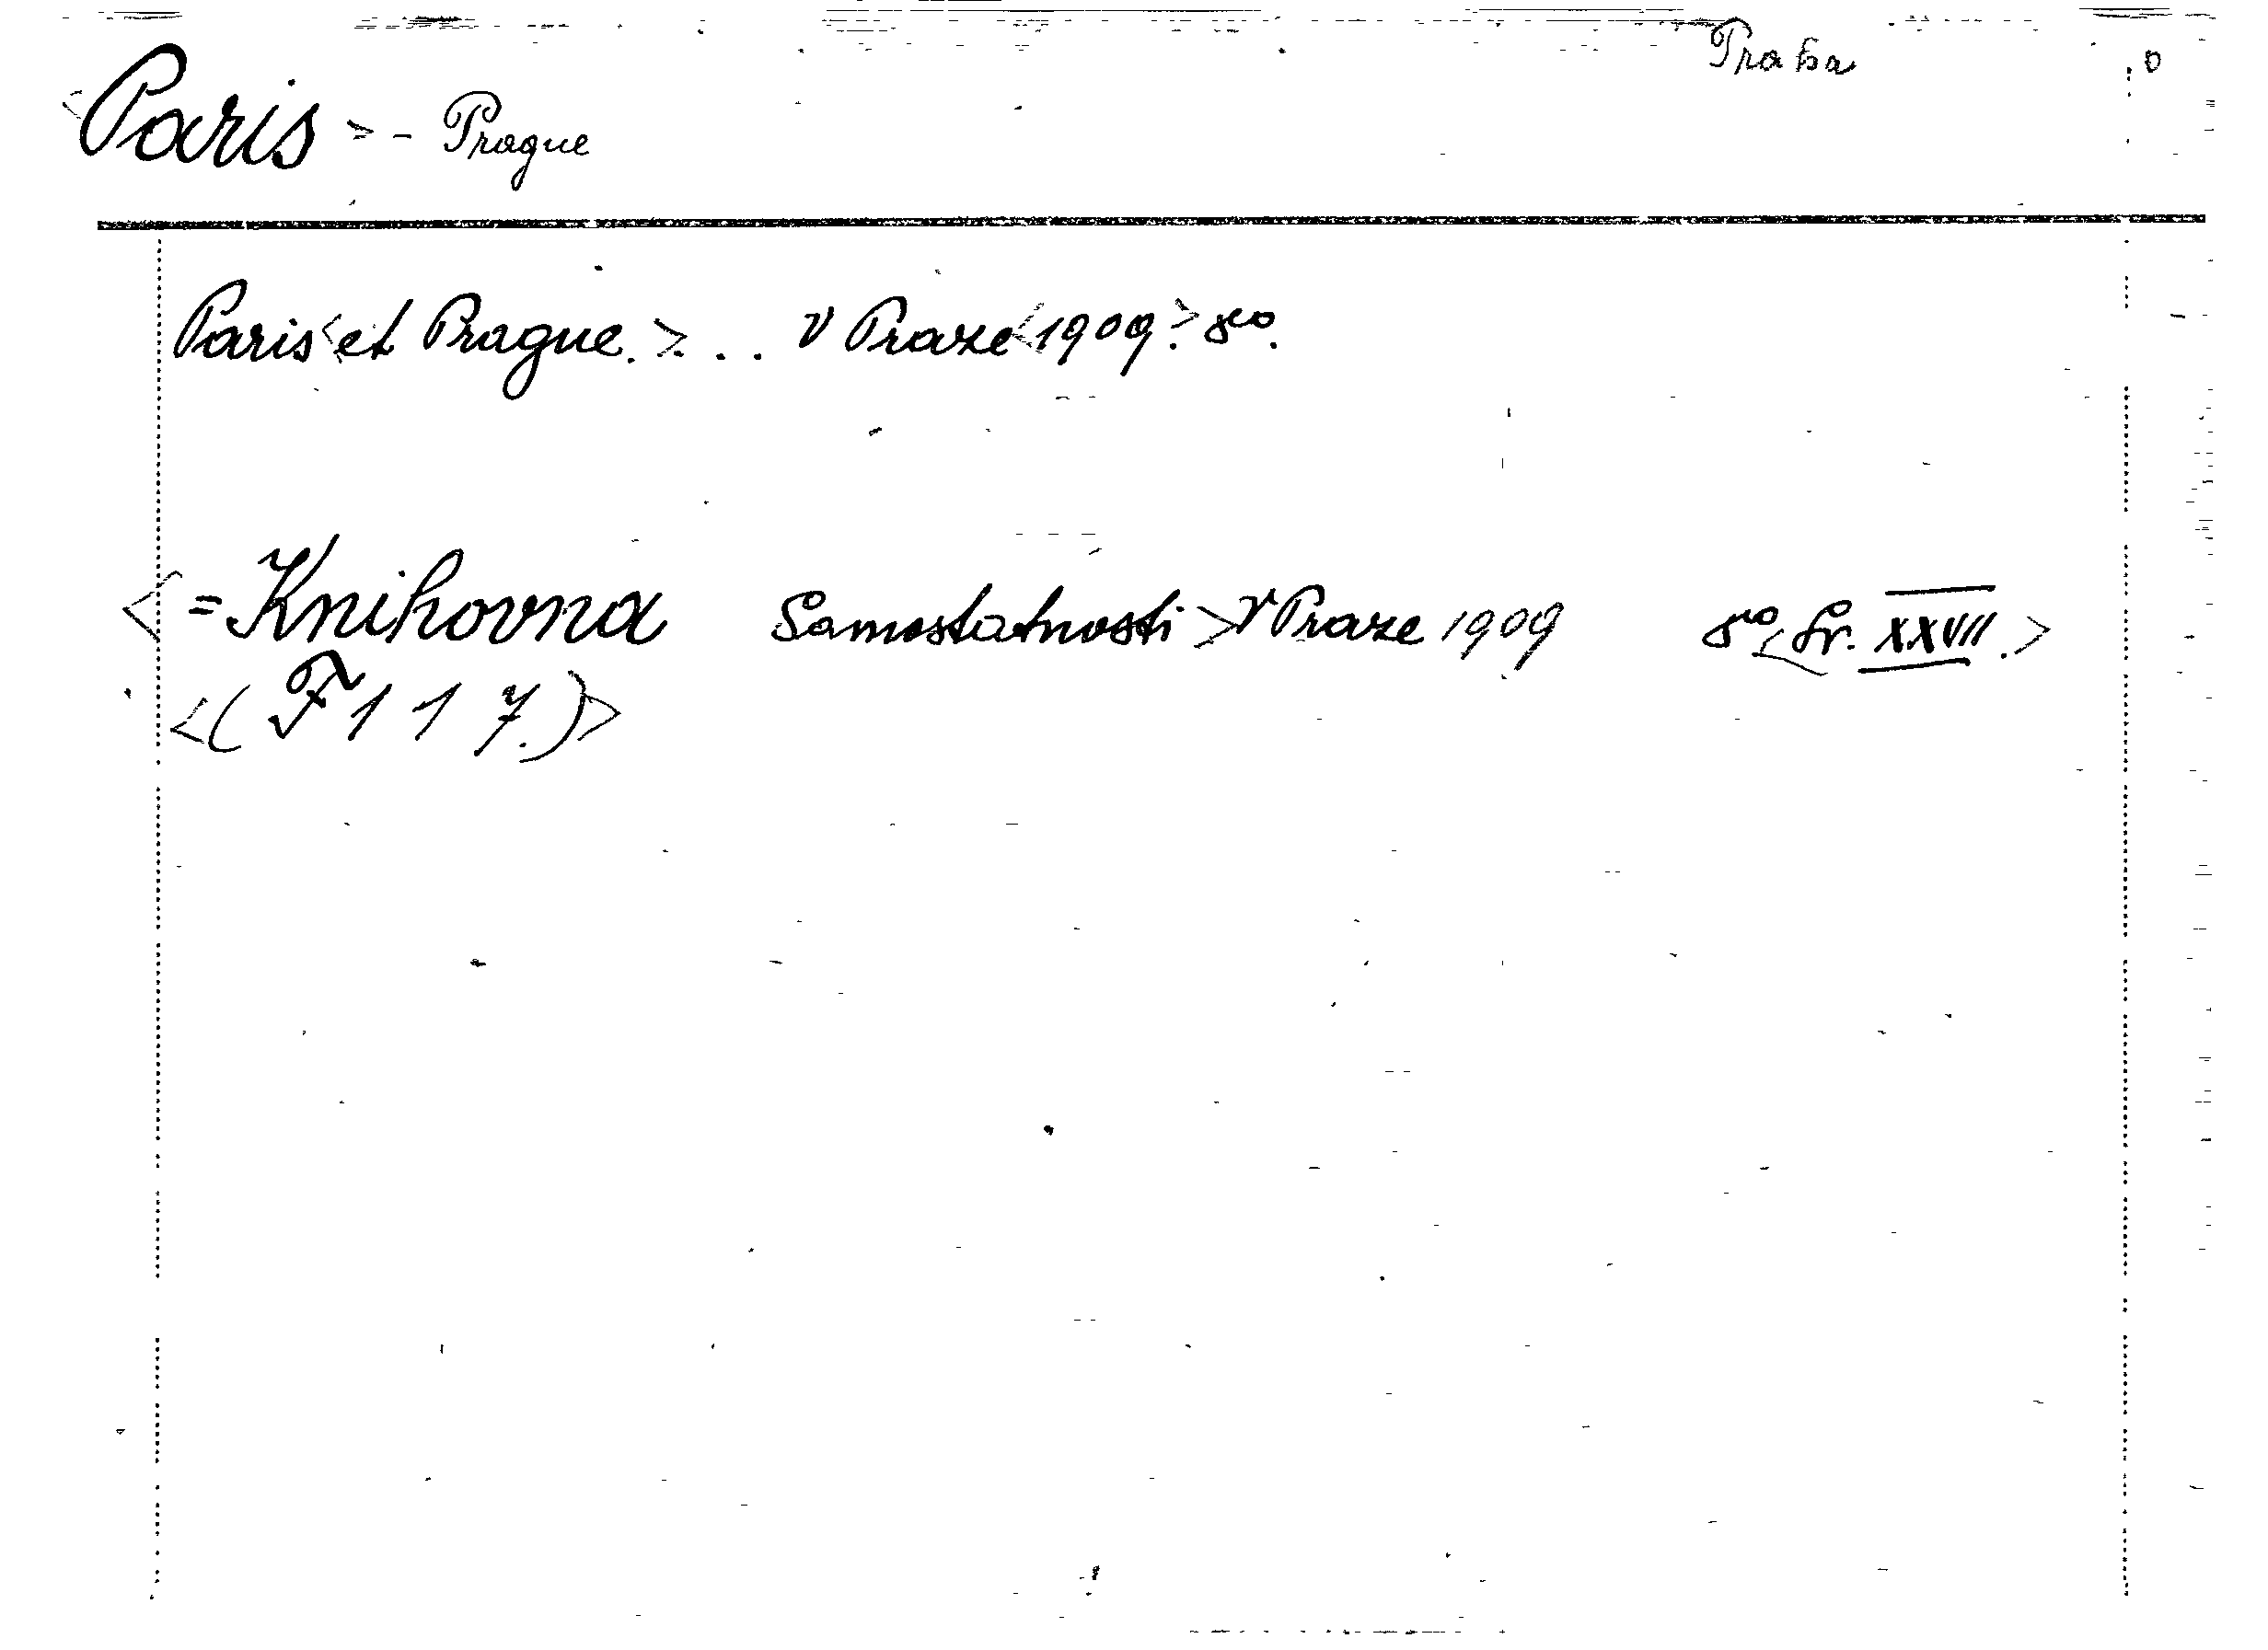 Praha
<Paris> - Prague
Paris <et Prague.> ... v Praze <1909.> 8vo.
<= Knihovna Samostatnosti> v Praze 1909 8vo <Sv. XXVII.>
<(F 1 1 7.)>